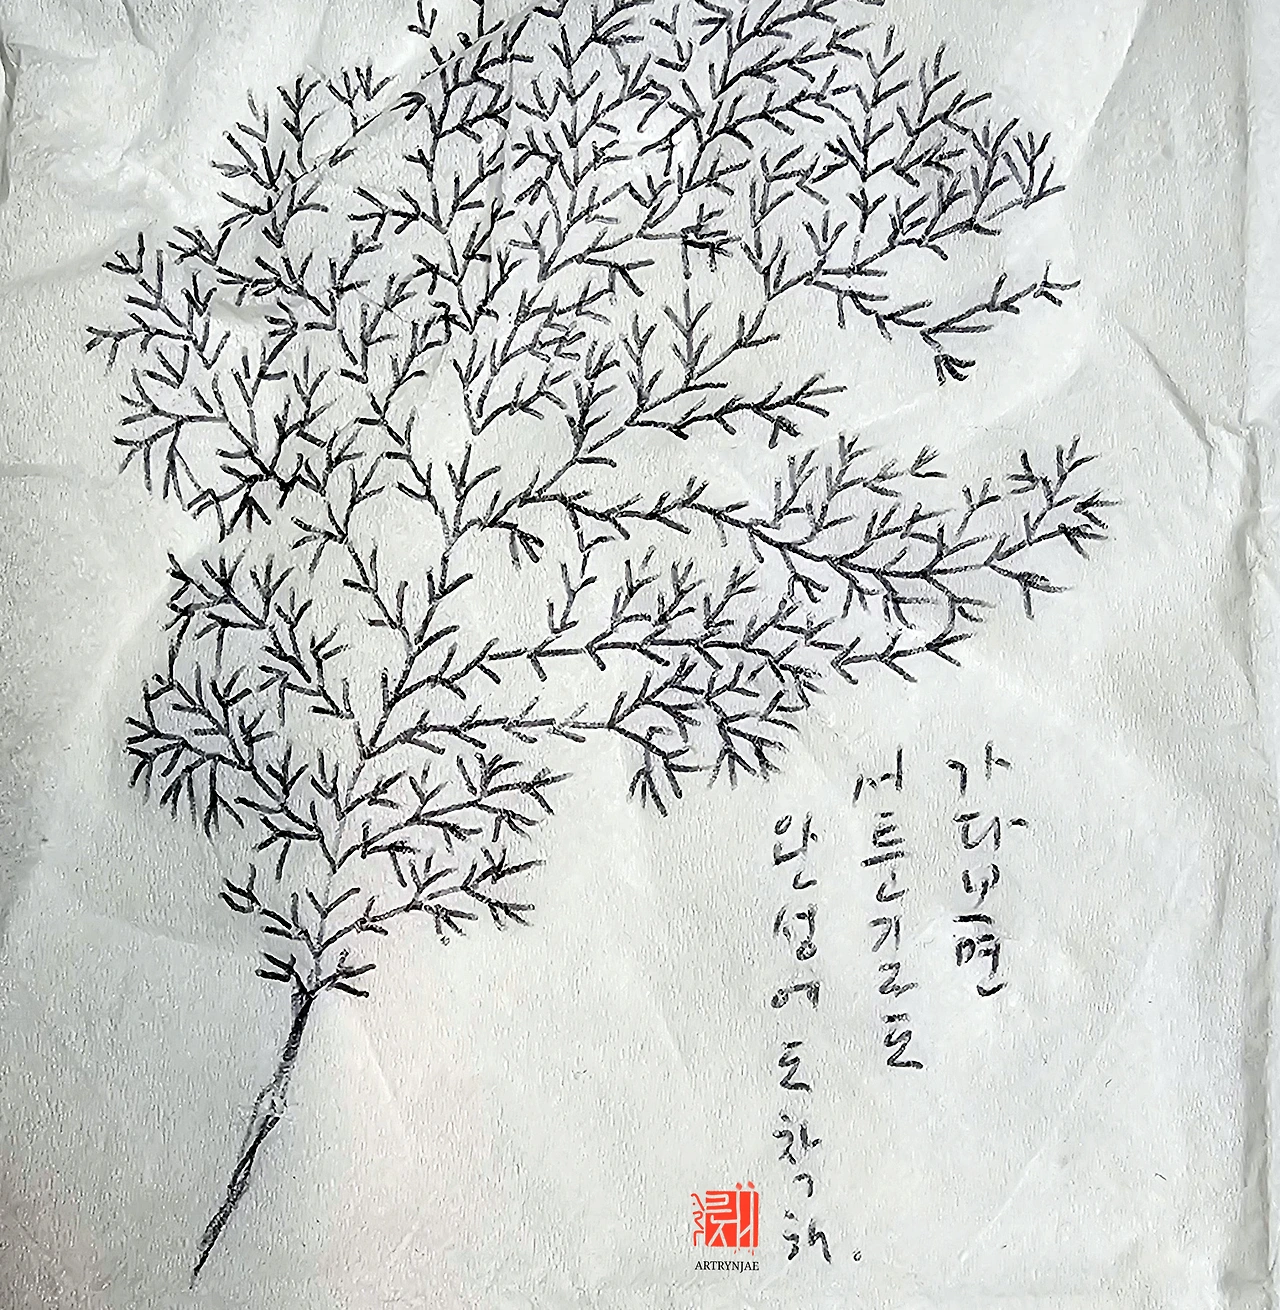 가다보면
서툰기로도
완성에도착해.
ARTRYNJAE